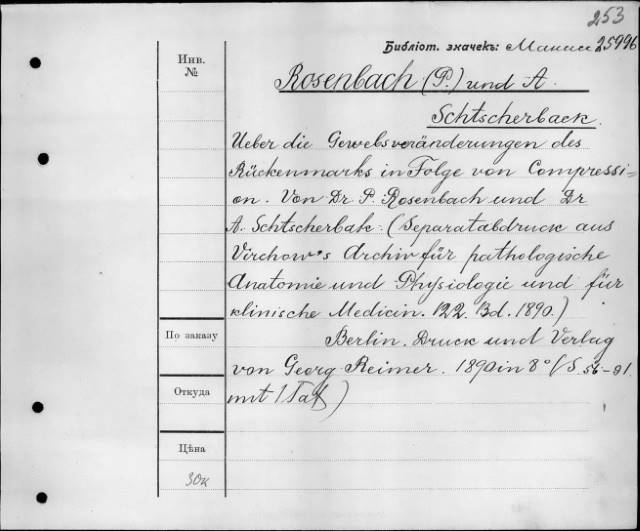 253
Библіот. значекъ: 25996
Инв.
№
Rosenbach (P.) und A.
Schtscherback.
Ueber die Gewebsveränderungen des
Rückenmarks in Folge von Compressi-
on. Von Dr. P. Rosenbach und Dr
A. Schtscherbak. (Separatabdruck aus
Virchow's Archiv für pathologische
Anatomie und Physiologie und für
klinische Medicin. 122. Bd. 1890.)
По заказу
Berlin. Druck und Verlag
von Georg Reimer. 1890 in 8° (S. 56-81.
Откуда
mit 1 Taf)
Цѣна
30к